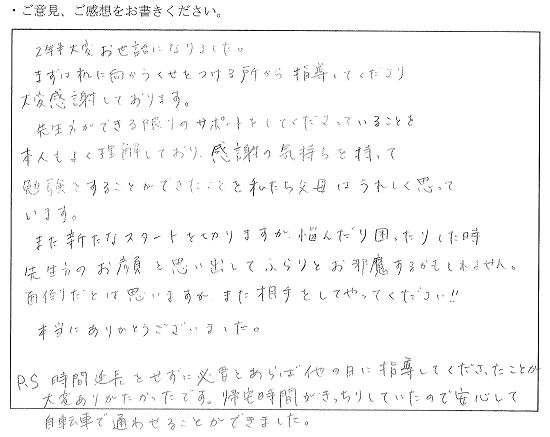 ・ご意見、ご感想をお書きください。
2年半大変お世話になりました。
まずは机に向かうくせをつける所から指導してくださり
大変感謝しております。
先生方ができる限りのサポートをしてくださっていることを
本人もよく理解しており、感謝の気持ちを持って
勉強をすることができたことを私たち父母はうれしく思って
います。
また新たなスタートを切りますが、悩んだり困ったりした時
先生方のお顔を思い出してふらりとお邪魔するかもしれません。
面倒だとは思いますが、また相手をしてやってください!!
本当にありがとうございました。
P.S 時間延長をせずに必要とあらば他の日に指導してくださったことが
大変ありがたかったです。帰宅時間がきっちりしていたので安心して
自転車で通わせることができました。